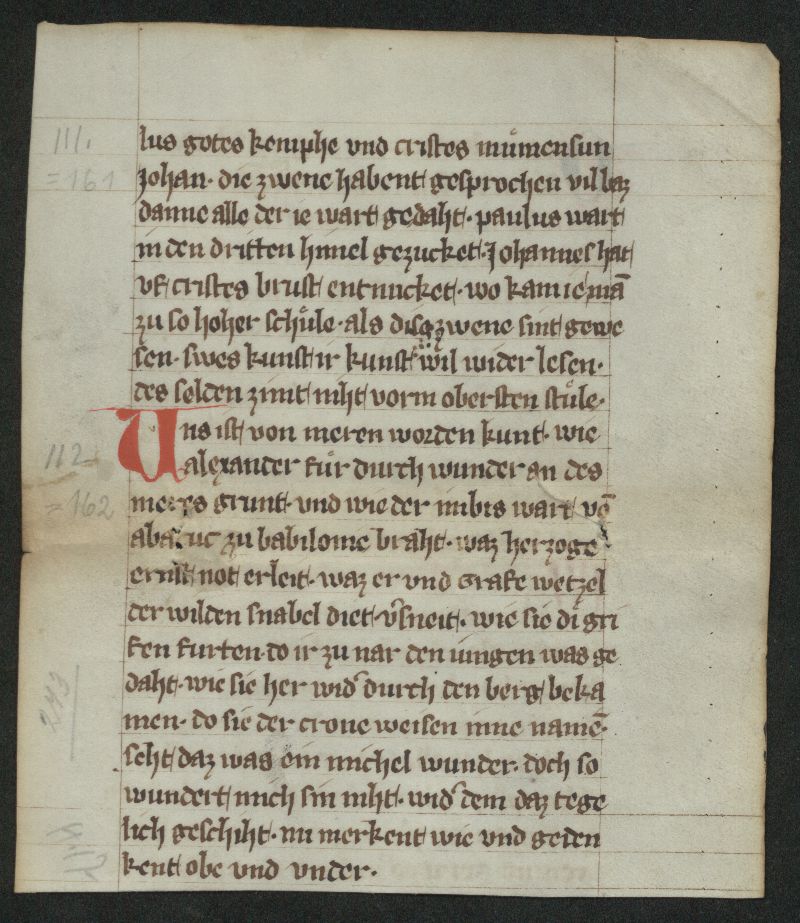 lus gotes kemphe vnd cristes muͦmensun
Johan· die zwene habent gesprochen vil baz
danne alle der ie wart gedaht· paulus wart
in den dritten himel gezucket· Johannes hat
vf cristes brust entnucket· wo kam ie man̄
zu so hoher schuͦle· als dise zwene sint gewe
sen· swes kunst ir kunst wil wider lesen·
des selden zimt niht vorm obersten stuͦle·
Uns ist von meren worden kunt· wie
alexander fuͦr durch wunder an des
meres grunt· vnd wie der imbis wart vō
abacuc zu babilonie braht· waz herzoge
ernst not erleit· waz er vnd Grafe wetzel
der wilden snabel diet v̓sneit· wie sie di gri
fen furten do ir zu nar den iungen was ge
daht· wie sie her wid̓ durch den berg beka
men· do sie der crone weisen inne namē·
seht daz was ein michel wunder· doch so
wundert mich sin niht· wid̓ dem daz tege
lich geschiht· nu merkent wie vnd geden
kent obe vnd vnder·
111.
=161
112
=162
243